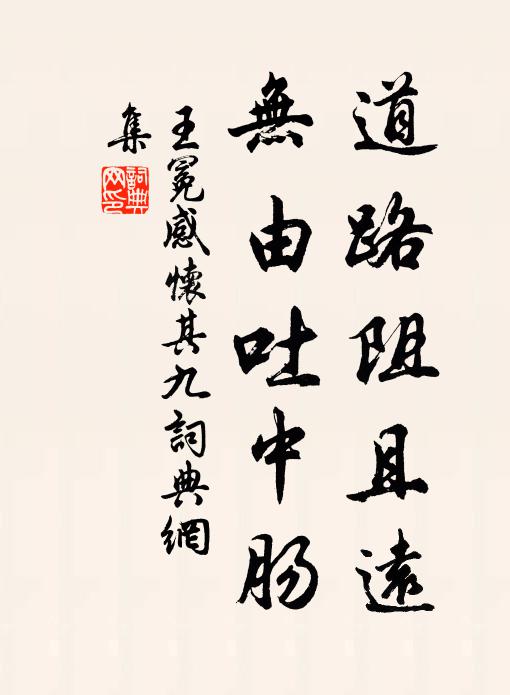 道路阻且遠
無由吐中肠
王冕感懷其九詞典網
集
詞典
网印